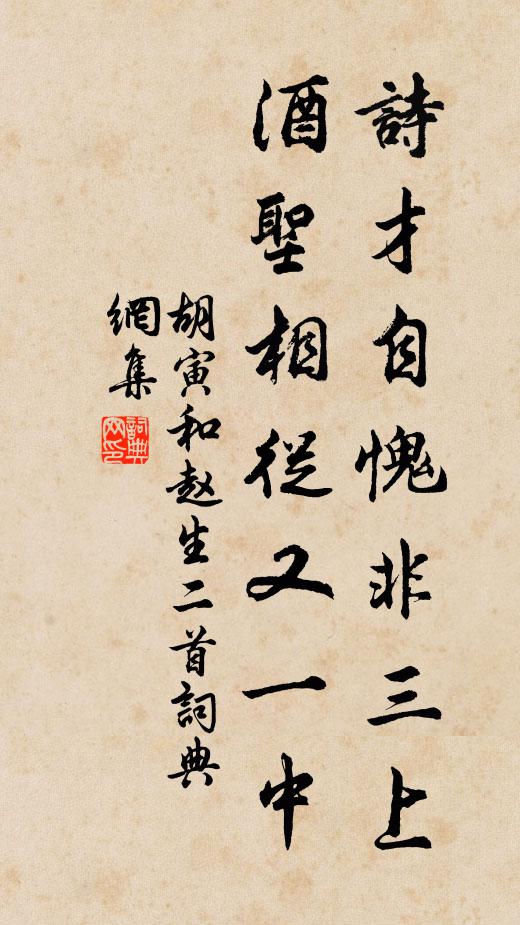 詩才自愧非三上
酒聖相從又一中
胡寅和赵生二首詞典
網集
詞典
网印